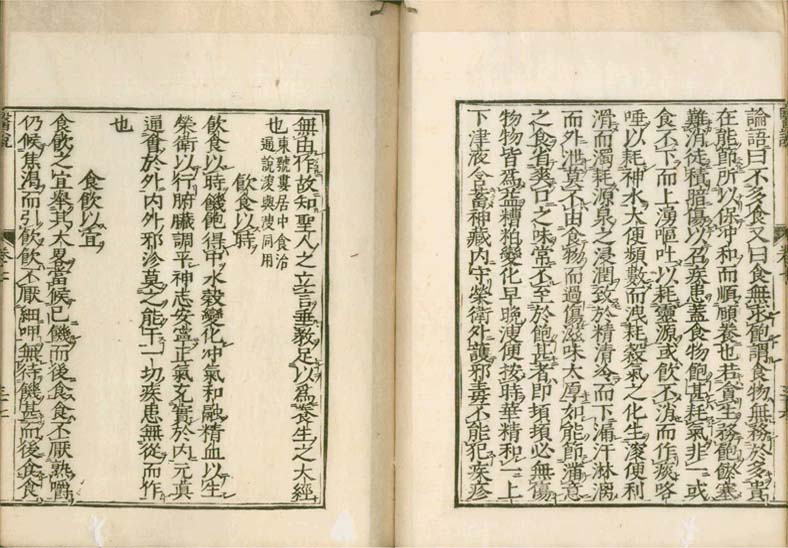 論語曰不多食又曰食無求飽謂食物無務於多貴
在能節所以保冲和而順頤養也若貪生務飽餘塞
難消徒積腊傷以召疾患蓋食物飽甚耗氣非一或
食不下而上湧嘔吐以耗靈源或飲不消而作痰咯
唾以耗神水大便頻數而洩耗穀氣之化生溲便利
滑而濁耗源泉之浸潤致於精清冷而下漏汗淋漓
而外泄莫不由食物而過傷滋味太厚如能節滿意
之食省爽口之味常不至於飽甚者即頓頓必無傷
物物皆爲益糟粕變化早晚溲便按時華精和一上
下津液含蓄神藏内守榮衛外護邪毒不能犯疾疹
無由作故知聖人之立言垂敎足以爲養生之大經
也
東號居中食治
通說溲與溲同用
飲食以時
飲食以時饑飽得中水穀變化冲氣和融精血以生
榮衛以行腑臟調平神志安寧正氣充實於内元真
通會於外内外邪沴莫之能干一切疾患無從而作
也
食飲以宜
食飲之宜舉其大畧當候已饑而後食食不厭熟嚼
仍候焦渴而引飲飲不厭細呷無待饑甚而後食食
醫說